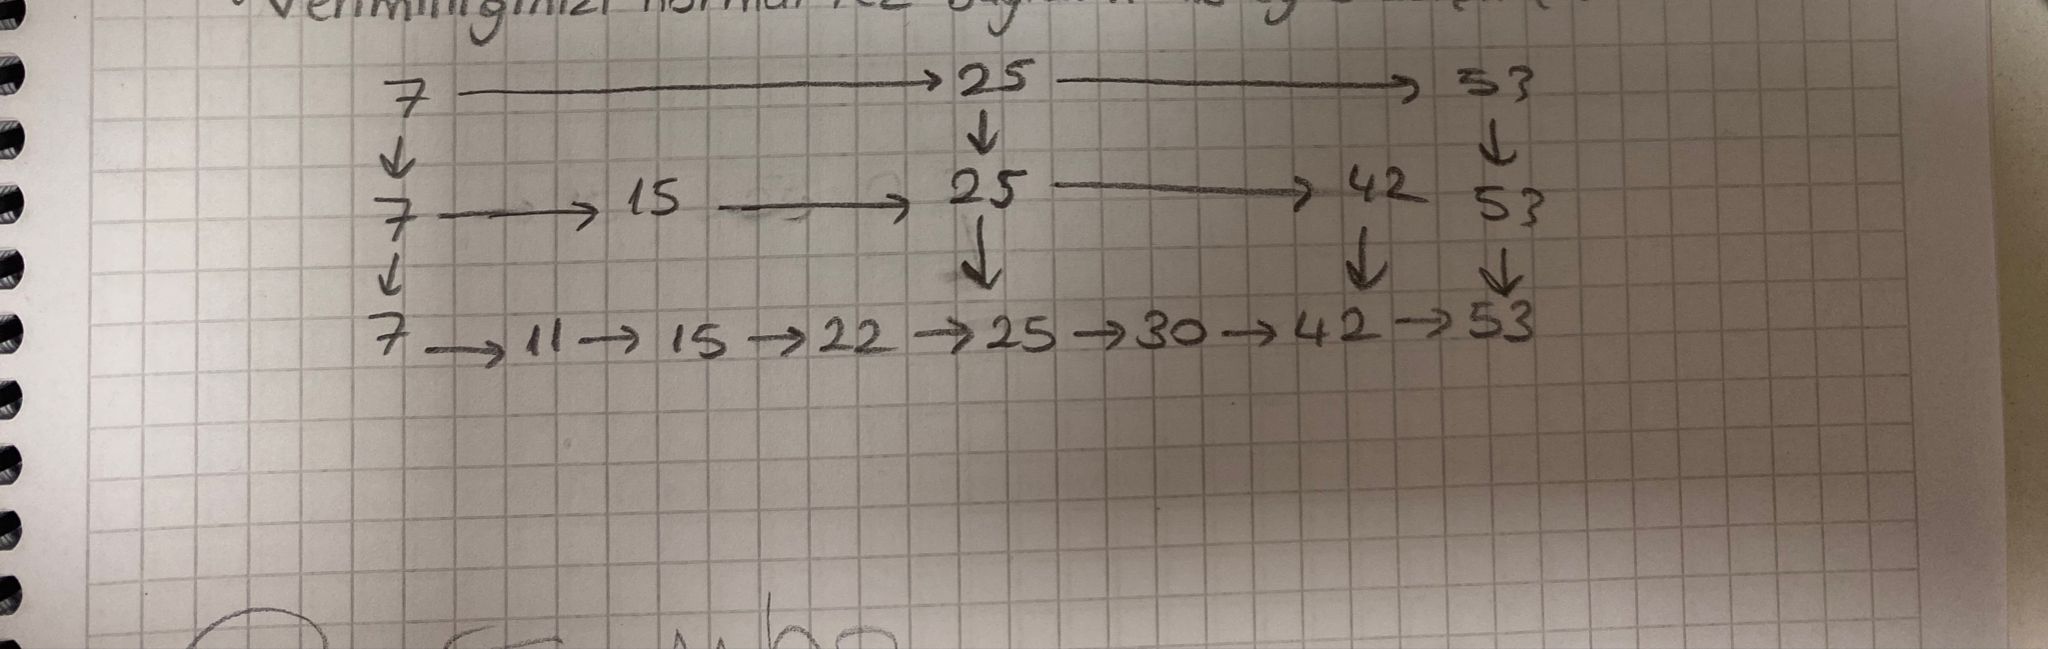 7 → 25 → 53
↓ ↓ ↓
7 → 15 → 25 → 42 53
↓ ↓ ↓ ↓
7 → 11 → 15 → 22 → 25 → 30 → 42 → 53